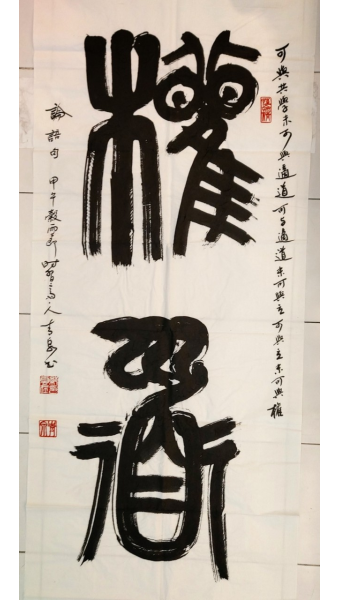 可與共學未可與適道可与適道未可與立可與立未可與權
權道
論語句 甲午穀雨節